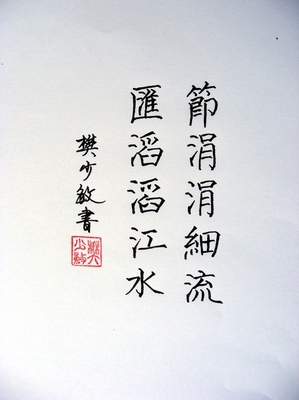 節涓涓細流
匯滔滔江水
樊少敏書